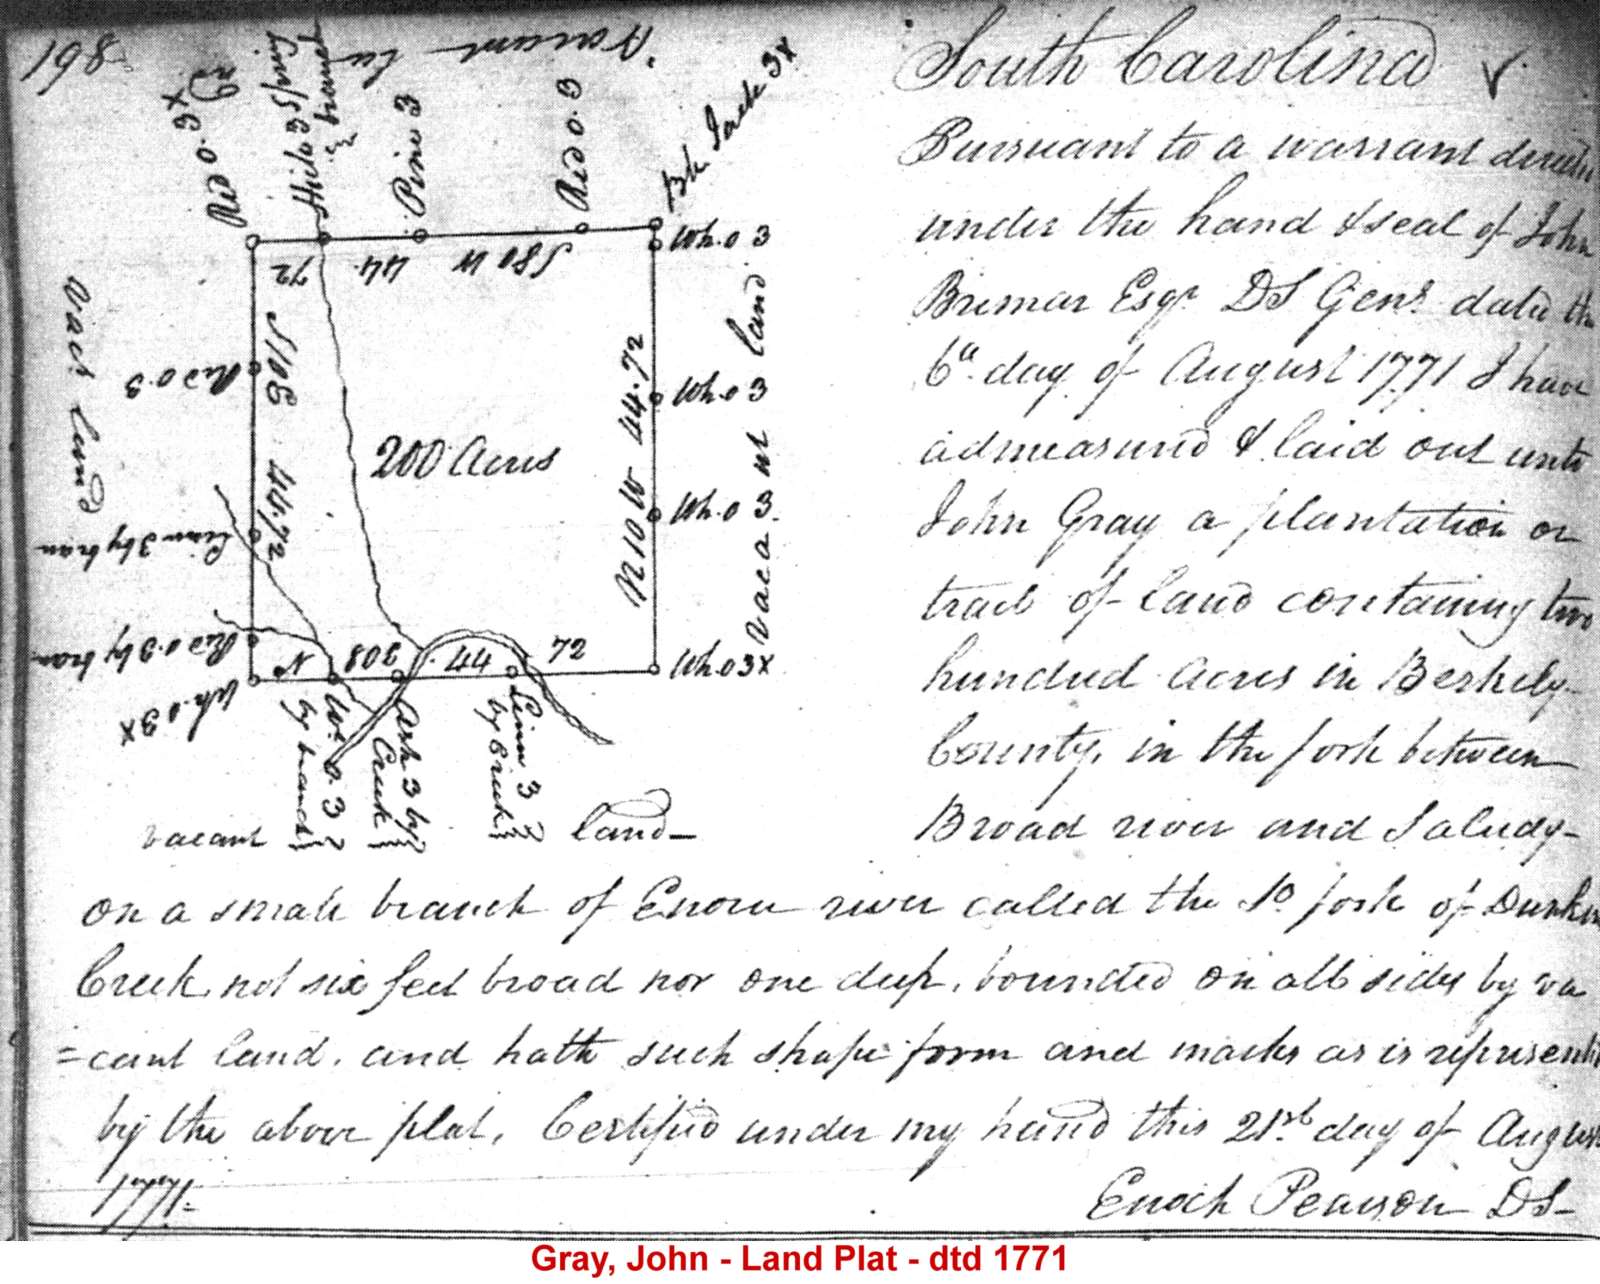 198
Vacant La
nd
Red o. 3x
Hick 3
branch
Pine 3
Red o. 3
Bk Jack 3x
72
44
S 80 W
Wh. o 3
Vact land
Red o. 3
S 10 E 44.72
200 Acres
N 10 W 44.72
Wh. o 3
Wh. o 3
Vacant land
Linn 3 by bran
Red o. 3 by bran
Wh. o 3x
N 80 E
44
72
Wh. o 3x
W. o. 3
by branch
Ash 3 by
Creek
Linn 3
by Creek
vacant
land
South Carolina
Pursuant to a warrant directe
under the hand & seal of John
Bremar Esqr DS Genl dated th
6th day of August 1771 I have
admeasured & laid out unto
John Gray a plantation or
tract of land containing two
hundred Acres in Berkely
County, in the fork between
Broad river and Saludy
on a small branch of Enoree river called the So fork of Dunkin
Creek not six feet broad nor one deep, bounded on all sides by va
=cant land. and hath such shape form and marks as is represente
by the above plat, Certified under my hand this 21st day of August
1771=
Enoch Pearson DS
Gray, John - Land Plat - dtd 1771